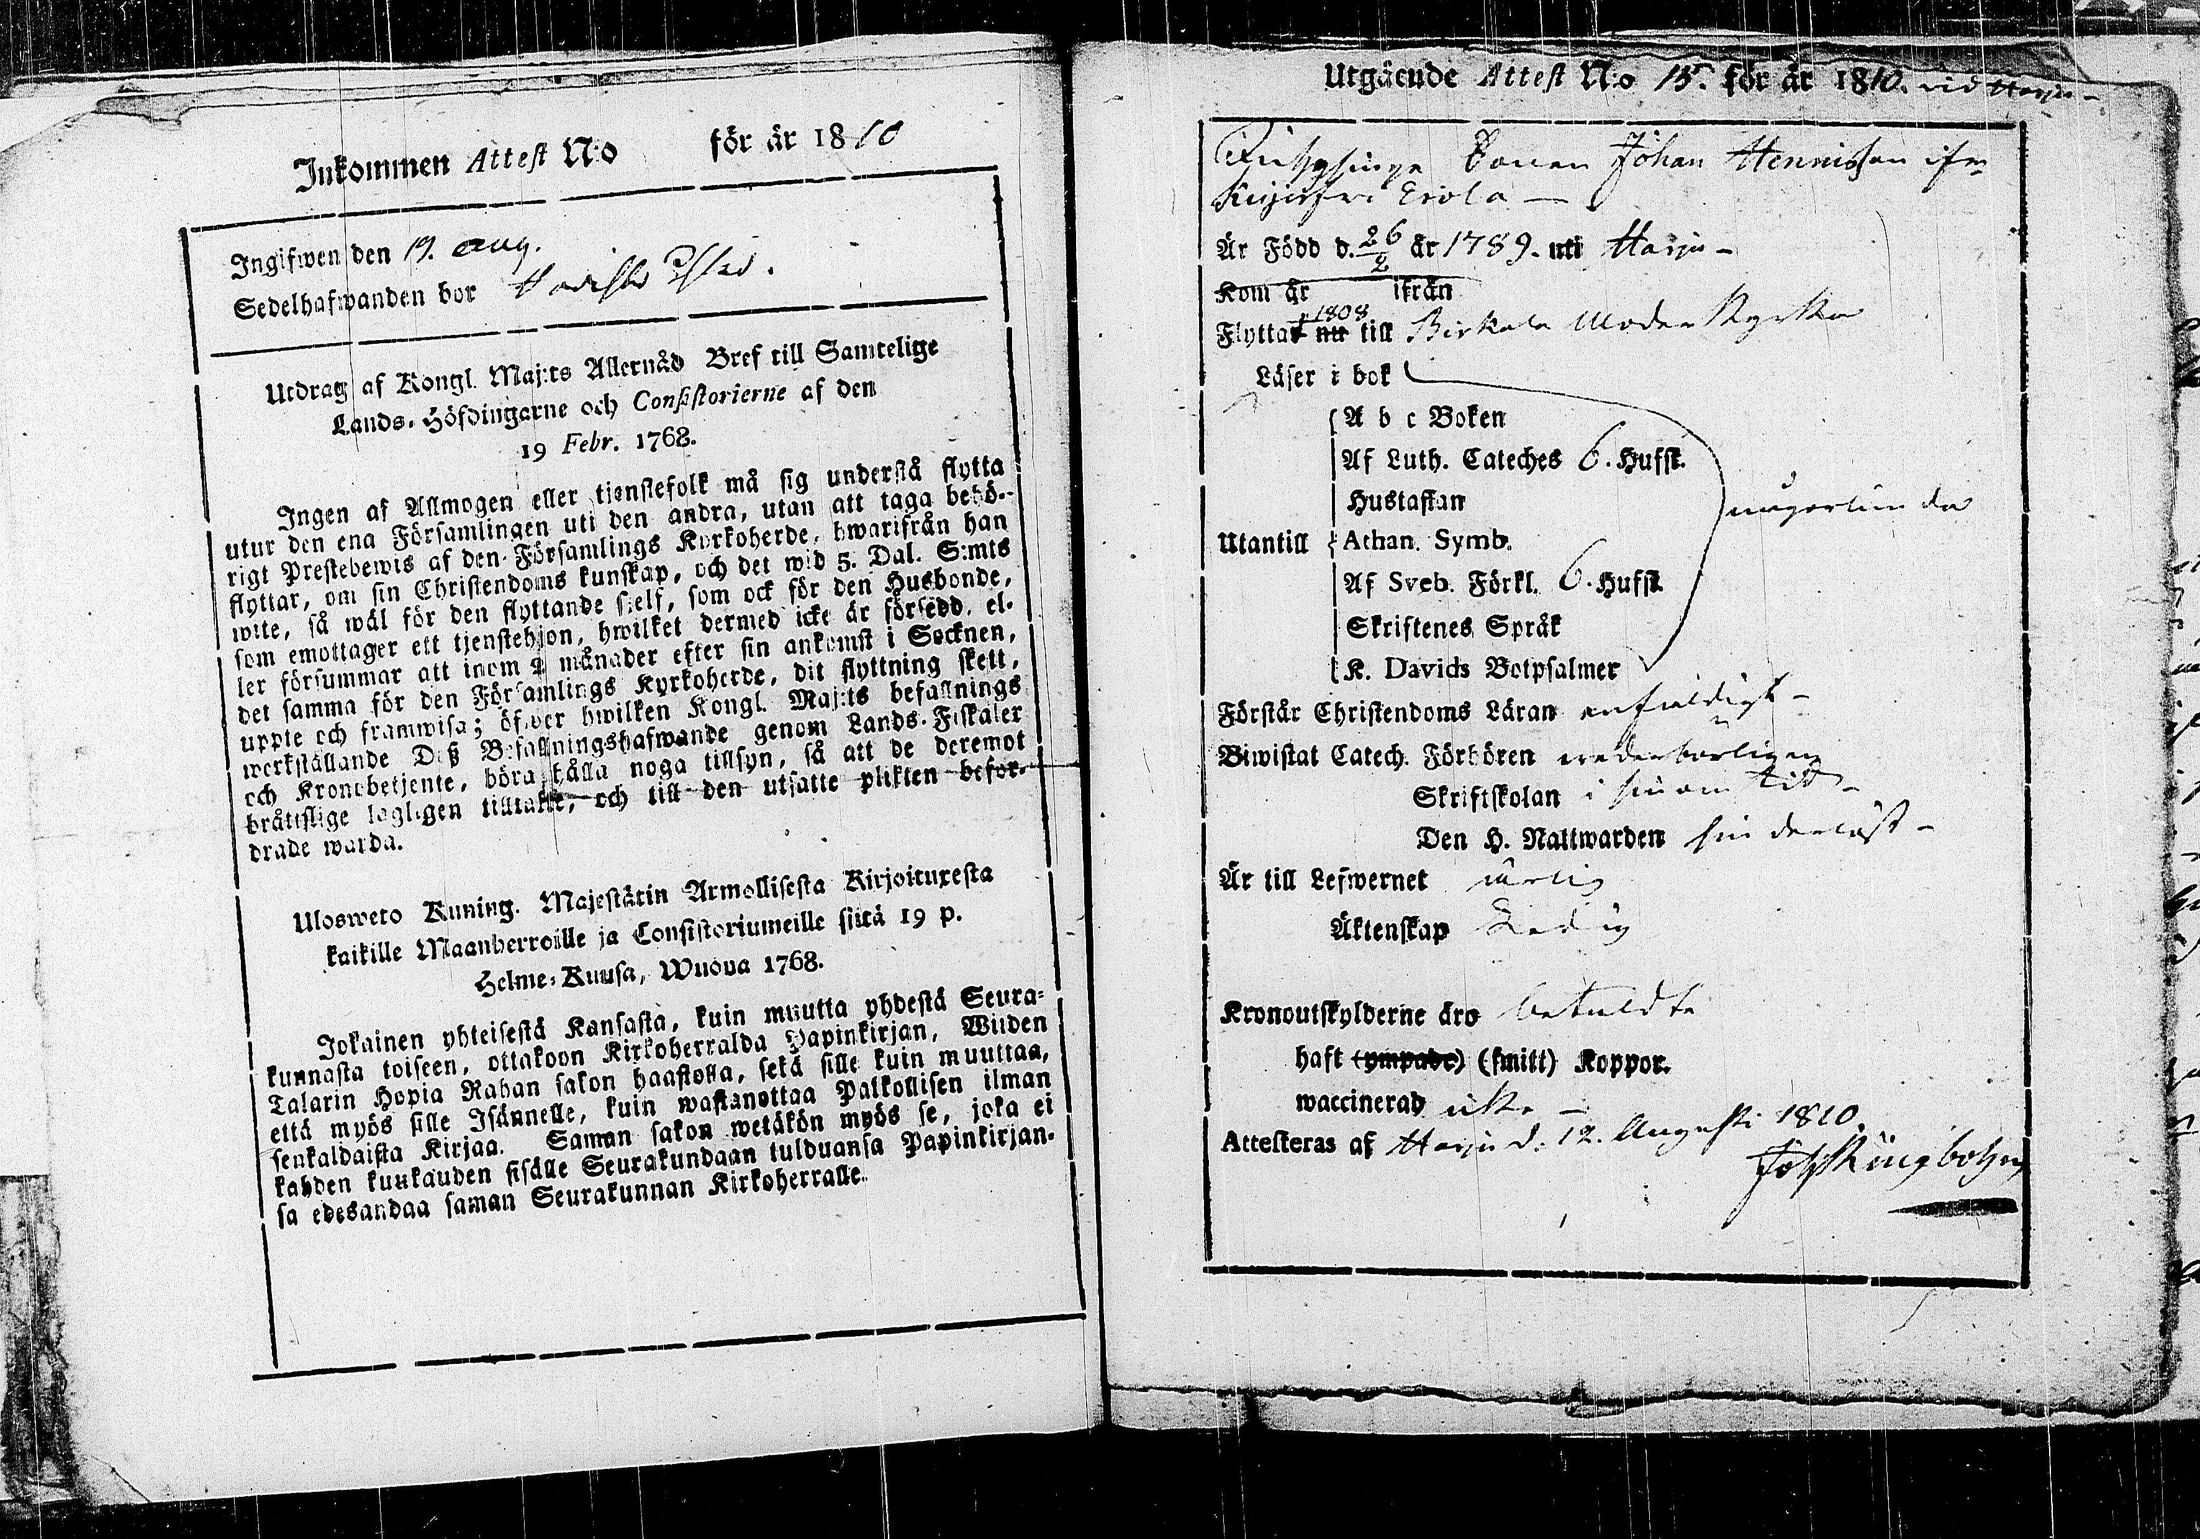 Inkommen Attest N:o för år 1810
Ingifwen den 19. aug.
Sedelhafwanden bor
Utdrag af Kongl. Maj:ts Allernåd Bref till Samtelige
Lands-Höfdingarne och Consistorierne af den
19 Febr. 1768.
Ingen af Allmogen eller tienstefolk må sig understå flytta
utur den ena Församlingen uti den andra, utan att taga behö-
rigt Prestebewis af den Församlings Kyrkoherde, hwarifrån han
flyttar, om sin Christendoms kunskap, och det wid 5. Dal. S:mts
wite, så wäl för den flyttande sielf, som ock för den Husbonde,
som emottager ett tjenstehjon, hwilket dermed icke är försedd, el-
ler försummar att inom 2 månader efter sin ankomst i Socknen,
det samma för den Församlings Kyrkoherde, dit flyttning skett,
uppte och framwisa; öfwer hwilken Kongl. Maj:ts befallnings
werkställande Deß Befallningshafwande genom Lands-Fiskaler
och Kronobetjente, böra hålla noga tillsyn, så att de deremot
bråttslige lagligen tilltalte, och till den utsatte plikten befor-
drade warda.
Ulosweto Kuning. Majestätin Armollisesta Kirjoituxesta
kaikille Maanherroille ja Consistoriumeille siitä 19 p.
Helme-Kuusa, Wuona 1768.
Jokainen yhteisestä Kansasta, kuin muutta yhdestä Seura-
kunnasta toiseen, ottakoon Kirkoherralda Papinkirjan, Wiiden
Talarin Hopia Rahan sakon haastolla, sekä sille kuin muuttaa,
että myös sille Isännelle, kuin wastanottaa Palkollisen ilman
senkaldaista Kirjaa. Saman sakon wetäkön myös se, joka ei
kahden kuukauden sisälle Seurakundaan tulduansa Papinkirjan-
sa edesandaa saman Seurakunnan Kirkoherralle.
Utgående Attest N:o 15. för år 1810. vid Harju
Johan Hennicsson ifrn
Erola
Är Född d. 26/2 år 1789. uti Harju
Kom år ifrån
Flyttat 1808 nu till Birkala Moder Kyrka
Läser i bok
A b c Boken
Af Luth. Cateches 6. Hufst.
Hustaflan någorlunda
Utantill Athan. Symb.
Af Sveb. Förkl. 6. Hufst.
Skriftenes Språk
K. Davids Botpsalmer
Förstår Christendoms Läran enfaldigt
Biwistat Catech. Förhören wederbörligen
Skriftskolan i sinom tid
Den H. Nattwarden sin derläst
Är till Lefwernet ärlig
Äktenskap Ledig
Kronoutskylderne äro betaldte
haft (ympade) (smitt) Koppor.
waccinerad icke
Attesteras af Harju d. 12. Augusti 1810.